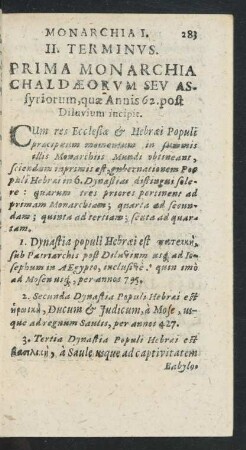 MONARCHIA I. 283
II. TERMINVS.
PRIMA MONARCHIA
CHALDÆORVM SEV AS-
syriorum, quæ Annis 62. post
Diluvium incipit.
CUm res Ecclesiæ & Hebræi Populi
præcipuum momentum in summis
illis Monarchiis Mundi obtineant,
sciendum inprimis est, gubernationem Po-
puli Hebræi in 6. Dynastias distingui sole-
re: quarum tres priores pertinent ad
primam Monarchiam; quarta ad secun-
dam; quinta ad tertiam; sexta ad quar-
tam.
1. Dynastia populi Hebræi est
sub Patriarchis post Diluvium usq; ad Io-
sephum in AEgypto, inclusivè: quin imò
ad Mosen usq;, per annos 795.
2. Secunda Dynastia Populi Hebræi est
ἡρωϊκὴ, Ducum & Judicum, à Mose, us-
que ad regnum Saulis, per annos 427.
3. Tertia Dynastia Populi Hebræi est
βασιλικὴ, à Saule usque ad captivitatem
Babylo-